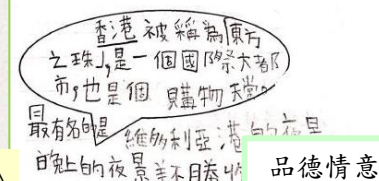 香港被稱為「東方
之珠」,是一個國際大都
市,也是個購物天堂。
最有名的是維多利亞港的夜景
晚上的夜景美不勝收
品德情意